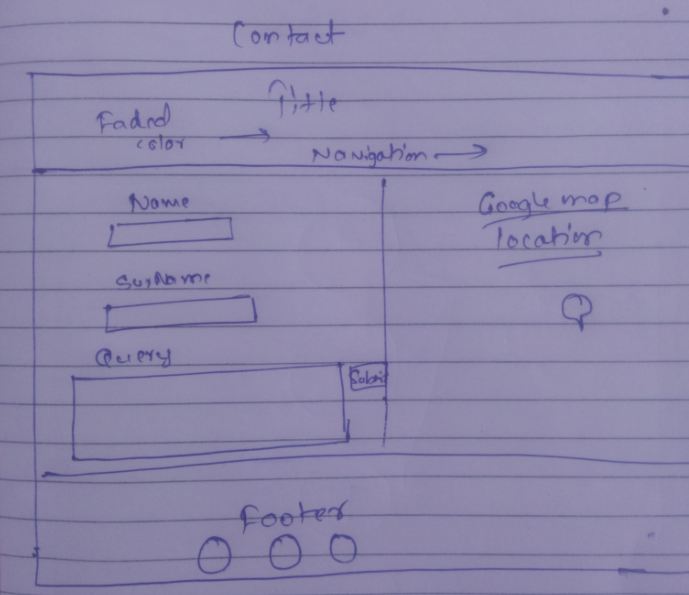 Contact
Title
Faded
color
Navigation
Name
SurName
Query
Submit
Google map
location
Footer